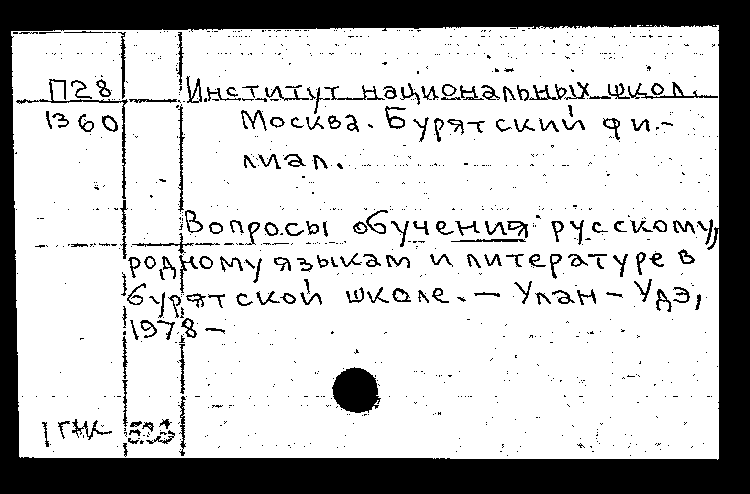 П28 Институт национальных школ.
1360 Москва. Бурятский фи-
лиал.
Вопросы обучения русскому,
родному языкам и литературе в
бурятской школе. — Улан-Удэ,
1978 —
523